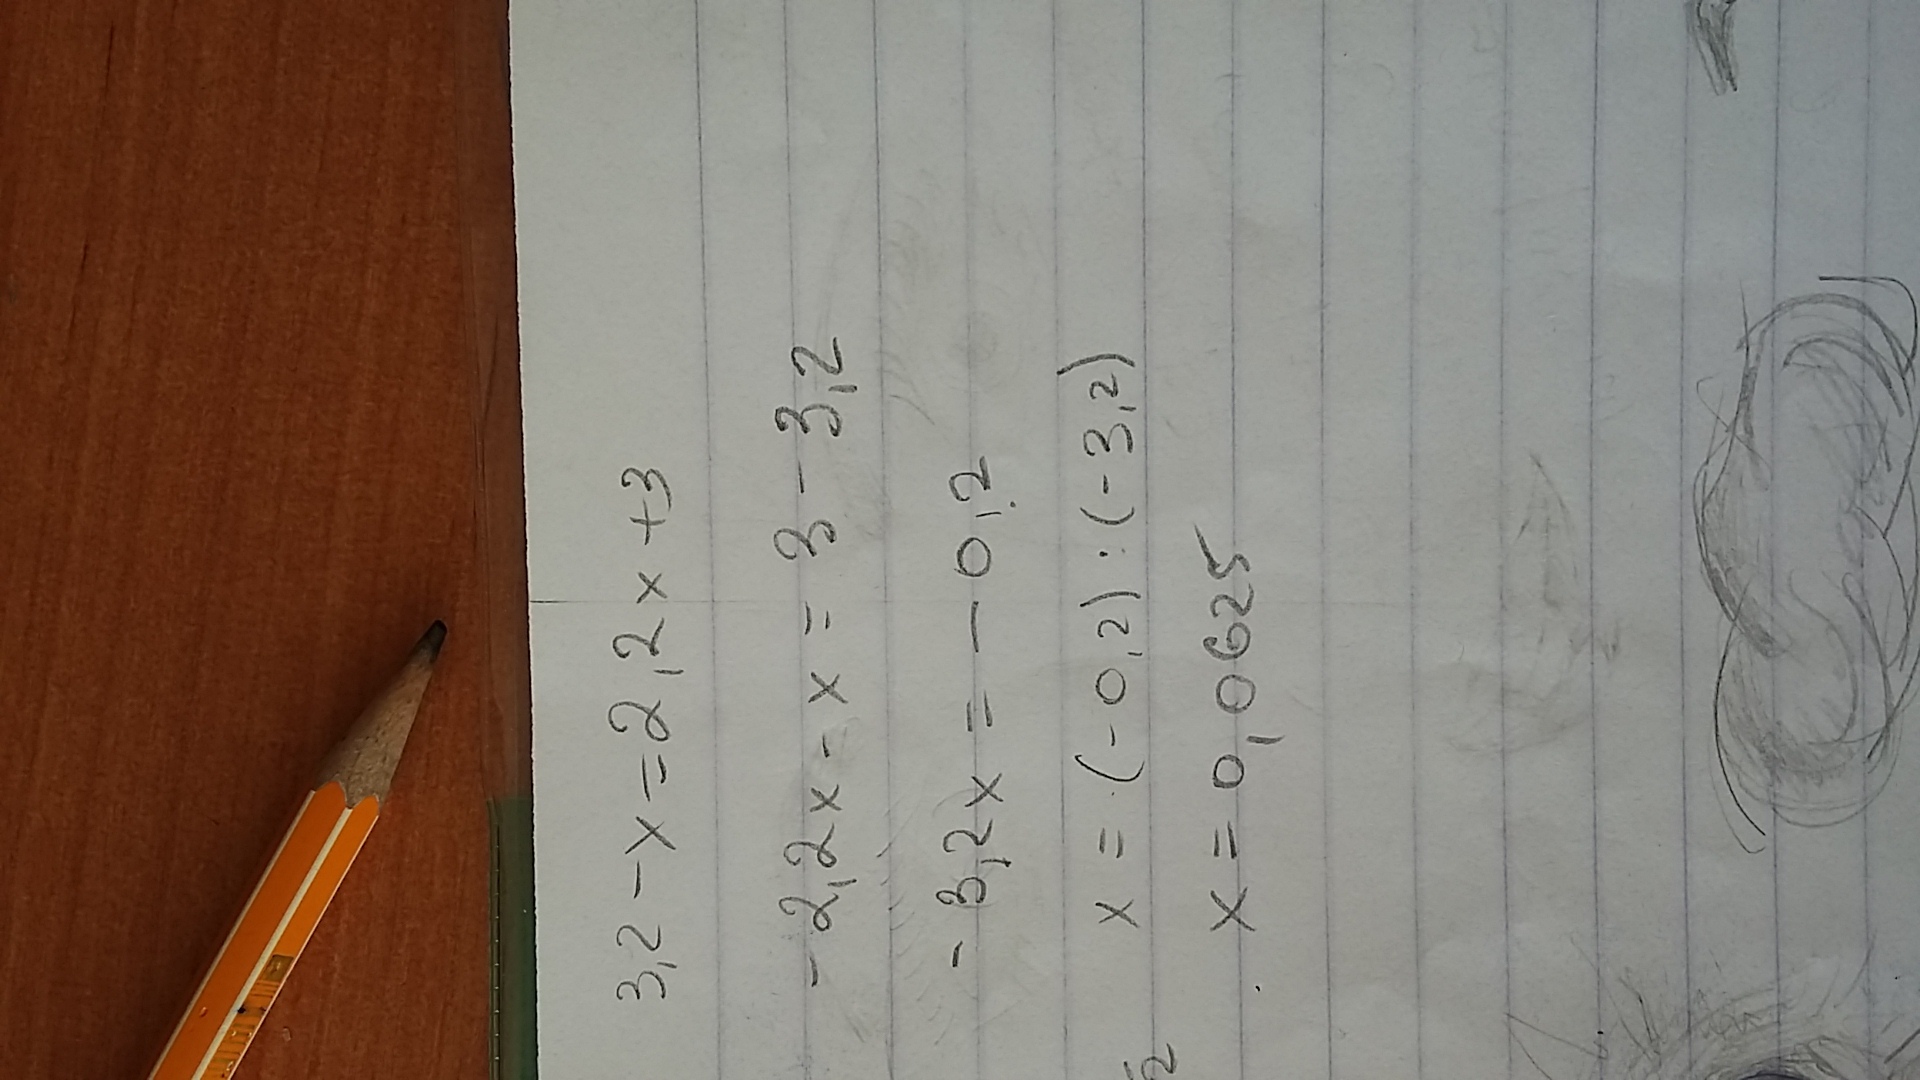 3,2 - x = 2,2x + 3
-2,2x - x = 3 - 3,2
-3,2x = - 0,2
x = (-0,2) : (-3,2)
x = 0,0625